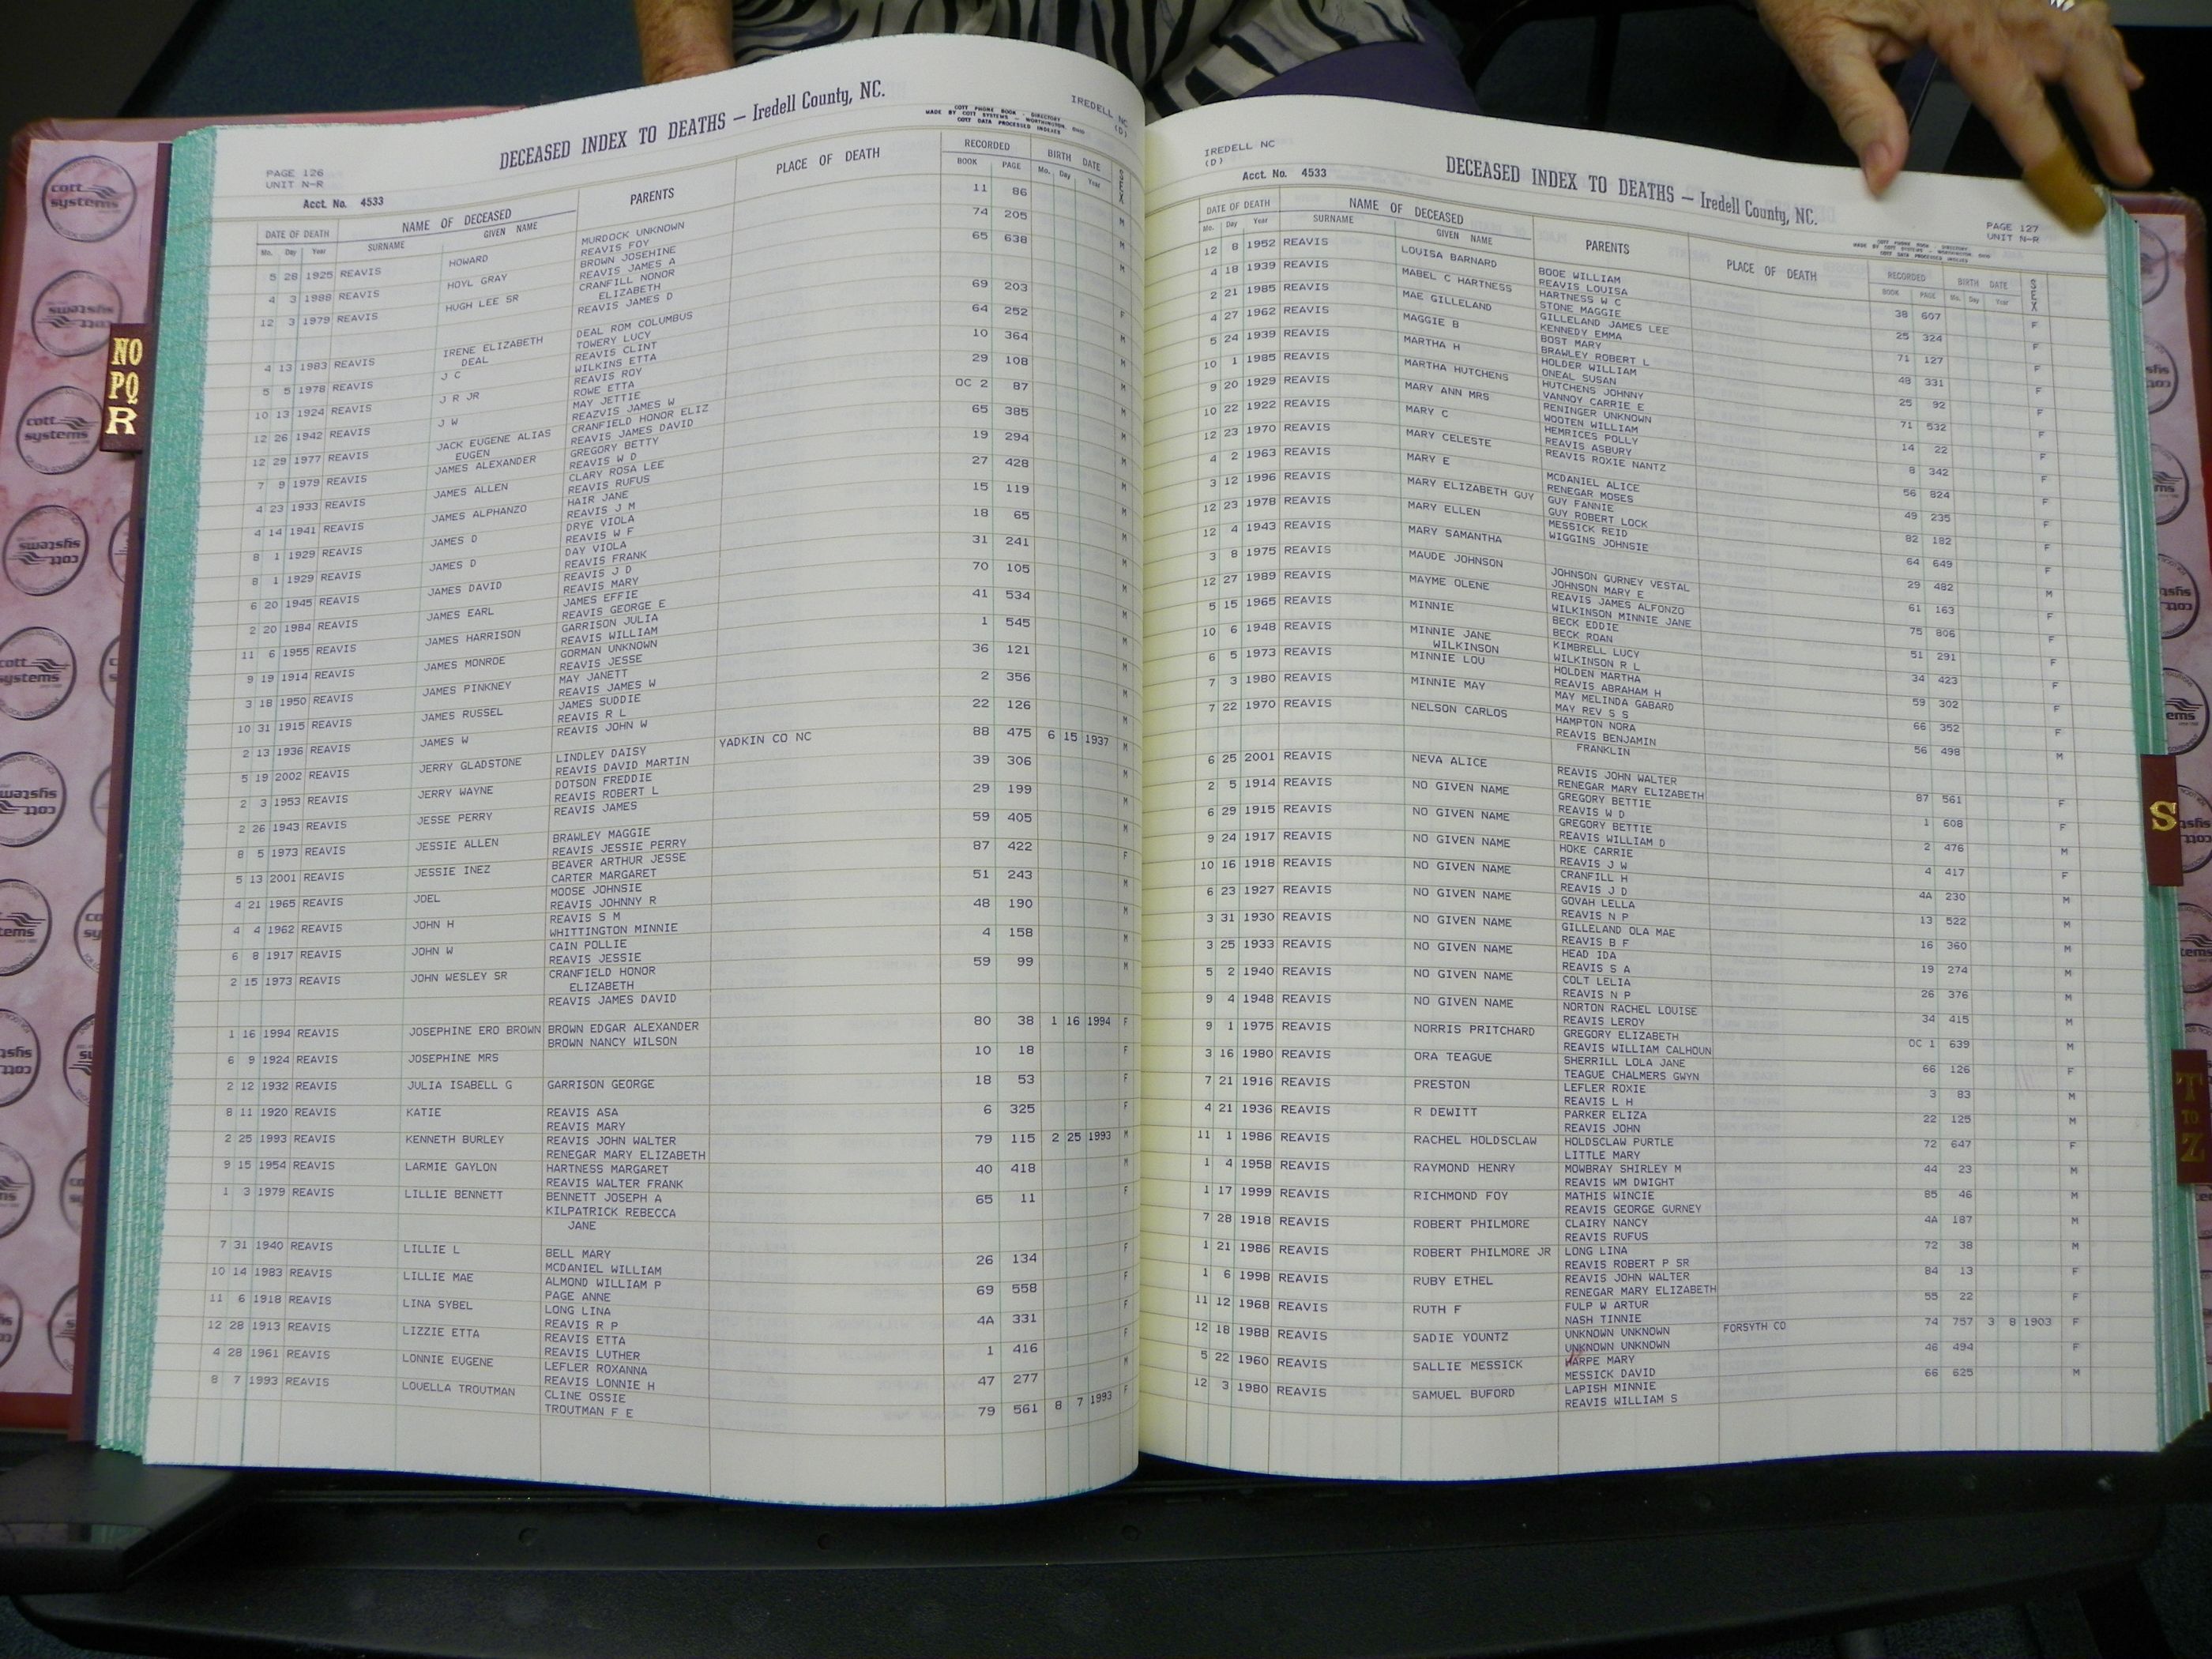 PAGE 126
UNIT N-R
Acct. No. 4533
DECEASED INDEX TO DEATHS — Iredell County, NC.
COTT PHONE BOOK - DIRECTORY
MADE BY COTT SYSTEMS - WORTHINGTON, OHIO
COTT DATA PROCESSED INDEXES
IREDELL NC
(D)
DATE OF DEATH NAME OF DECEASED PARENTS PLACE OF DEATH RECORDED BIRTH DATE SEX
Mo. Day Year SURNAME GIVEN NAME BOOK PAGE Mo. Day Year
5 28 1925 REAVIS HOWARD MURDOCK UNKNOWN 11 86 M
REAVIS FOY
4 3 1988 REAVIS HOYL GRAY BROWN JOSEHINE 74 205 M
REAVIS JAMES A
12 3 1979 REAVIS HUGH LEE SR CRANFILL NONOR 65 638 M
ELIZABETH
REAVIS JAMES D
4 13 1983 REAVIS IRENE ELIZABETH DEAL ROM COLUMBUS 69 203 F
DEAL TOWERY LUCY
5 5 1978 REAVIS J C REAVIS CLINT 64 252 M
WILKINS ETTA
10 13 1924 REAVIS J R JR REAVIS ROY 10 364 M
ROWE ETTA
12 26 1942 REAVIS J W MAY JETTIE 29 108 M
REAZVIS JAMES W
12 29 1977 REAVIS JACK EUGENE ALIAS CRANFIELD HONOR ELIZ OC 2 87 M
EUGEN REAVIS JAMES DAVID
7 9 1979 REAVIS JAMES ALEXANDER GREGORY BETTY 65 385 M
REAVIS W D
4 23 1933 REAVIS JAMES ALLEN CLARY ROSA LEE 19 294 M
REAVIS RUFUS
4 14 1941 REAVIS JAMES ALPHANZO HAIR JANE 27 428 M
REAVIS J M
8 1 1929 REAVIS JAMES D DRYE VIOLA 15 119 M
REAVIS W F
8 1 1929 REAVIS JAMES D DAY VIOLA 18 65 M
REAVIS FRANK
6 20 1945 REAVIS JAMES DAVID REAVIS J D 31 241 M
REAVIS MARY
2 20 1984 REAVIS JAMES EARL JAMES EFFIE 70 105 M
REAVIS GEORGE E
11 6 1955 REAVIS JAMES HARRISON GARRISON JULIA 41 534 M
REAVIS WILLIAM
9 19 1914 REAVIS JAMES MONROE GORMAN UNKNOWN 1 545 M
REAVIS JESSE
3 18 1950 REAVIS JAMES PINKNEY MAY JANETT 36 121 M
REAVIS JAMES W
10 31 1915 REAVIS JAMES RUSSEL JAMES SUDDIE 2 356 M
REAVIS R L
2 13 1936 REAVIS JAMES W REAVIS JOHN W 22 126 M
5 19 2002 REAVIS JERRY GLADSTONE LINDLEY DAISY YADKIN CO NC 88 475 6 15 1937 M
REAVIS DAVID MARTIN
2 3 1953 REAVIS JERRY WAYNE DOTSON FREDDIE 39 306 M
REAVIS ROBERT L
2 26 1943 REAVIS JESSE PERRY REAVIS JAMES 29 199 M
8 5 1973 REAVIS JESSIE ALLEN BRAWLEY MAGGIE 59 405 M
REAVIS JESSIE PERRY
5 13 2001 REAVIS JESSIE INEZ BEAVER ARTHUR JESSE 87 422 F
CARTER MARGARET
4 21 1965 REAVIS JOEL MOOSE JOHNSIE 51 243 M
REAVIS JOHNNY R
4 4 1962 REAVIS JOHN H REAVIS S M 48 190 M
WHITTINGTON MINNIE
6 8 1917 REAVIS JOHN W CAIN POLLIE 4 158 M
REAVIS JESSIE
2 15 1973 REAVIS JOHN WESLEY SR CRANFIELD HONOR 59 99 M
ELIZABETH
REAVIS JAMES DAVID
1 16 1994 REAVIS JOSEPHINE ERO BROWN BROWN EDGAR ALEXANDER 80 38 1 16 1994 F
BROWN NANCY WILSON
6 9 1924 REAVIS JOSEPHINE MRS 10 18 F
2 12 1932 REAVIS JULIA ISABELL G GARRISON GEORGE 18 53 F
8 11 1920 REAVIS KATIE REAVIS ASA 6 325 F
REAVIS MARY
2 25 1993 REAVIS KENNETH BURLEY REAVIS JOHN WALTER 79 115 2 25 1993 M
RENEGAR MARY ELIZABETH
9 15 1954 REAVIS LARMIE GAYLON HARTNESS MARGARET 40 418 M
REAVIS WALTER FRANK
1 3 1979 REAVIS LILLIE BENNETT BENNETT JOSEPH A 65 11 F
KILPATRICK REBECCA
JANE
7 31 1940 REAVIS LILLIE L BELL MARY 26 134 F
MCDANIEL WILLIAM
10 14 1983 REAVIS LILLIE MAE ALMOND WILLIAM P 69 558 F
PAGE ANNE
11 6 1918 REAVIS LINA SYBEL LONG LINA 4A 331 F
REAVIS R P
12 28 1913 REAVIS LIZZIE ETTA REAVIS ETTA 1 416 F
REAVIS LUTHER
4 28 1961 REAVIS LONNIE EUGENE LEFLER ROXANNA 47 277 M
REAVIS LONNIE H
8 7 1993 REAVIS LOUELLA TROUTMAN CLINE OSSIE 79 561 8 7 1993 F
TROUTMAN F E
IREDELL NC
(D)
Acct. No. 4533
DECEASED INDEX TO DEATHS — Iredell County, NC.
PAGE 127
UNIT N-R
COTT PHONE BOOK - DIRECTORY
MADE BY COTT SYSTEMS - WORTHINGTON, OHIO
COTT DATA PROCESSED INDEXES
DATE OF DEATH NAME OF DECEASED PARENTS PLACE OF DEATH RECORDED BIRTH DATE SEX
Mo. Day Year SURNAME GIVEN NAME BOOK PAGE Mo. Day Year
12 8 1952 REAVIS LOUISA BARNARD BOOE WILLIAM 38 607 F
REAVIS LOUISA
4 18 1939 REAVIS MABEL C HARTNESS HARTNESS W C 25 324 F
STONE MAGGIE
2 21 1985 REAVIS MAE GILLELAND GILLELAND JAMES LEE 71 127 F
KENNEDY EMMA
4 27 1962 REAVIS MAGGIE B BOST MARY 48 331 F
BRAWLEY ROBERT L
5 24 1939 REAVIS MARTHA H HOLDER WILLIAM 25 92 F
ONEAL SUSAN
10 1 1985 REAVIS MARTHA HUTCHENS HUTCHENS JOHNNY 71 532 F
VANNOY CARRIE E
9 20 1929 REAVIS MARY ANN MRS RENINGER UNKNOWN 14 22 F
10 22 1922 REAVIS MARY C WOOTEN WILLIAM 8 342 F
HEMRICES POLLY
12 23 1970 REAVIS MARY CELESTE REAVIS ASBURY 56 824 F
REAVIS ROXIE NANTZ
4 2 1963 REAVIS MARY E MCDANIEL ALICE 49 235 F
RENEGAR MOSES
3 12 1996 REAVIS MARY ELIZABETH GUY GUY FANNIE 82 182 F
GUY ROBERT LOCK
12 23 1978 REAVIS MARY ELLEN MESSICK REID 64 649 F
WIGGINS JOHNSIE
12 4 1943 REAVIS MARY SAMANTHA 29 482 M
3 8 1975 REAVIS MAUDE JOHNSON JOHNSON GURNEY VESTAL 61 163 F
JOHNSON MARY E
12 27 1989 REAVIS MAYME OLENE REAVIS JAMES ALFONZO 75 806 F
WILKINSON MINNIE JANE
5 15 1965 REAVIS MINNIE BECK EDDIE 51 291 F
BECK ROAN
10 6 1948 REAVIS MINNIE JANE KIMBRELL LUCY 34 423 F
WILKINSON WILKINSON R L
6 5 1973 REAVIS MINNIE LOU HOLDEN MARTHA 59 302 F
REAVIS ABRAHAM H
7 3 1980 REAVIS MINNIE MAY MAY MELINDA GABARD 66 352 F
MAY REV S S
7 22 1970 REAVIS NELSON CARLOS HAMPTON NORA 56 498 M
REAVIS BENJAMIN
FRANKLIN
6 25 2001 REAVIS NEVA ALICE REAVIS JOHN WALTER 87 561 F
RENEGAR MARY ELIZABETH
2 5 1914 REAVIS NO GIVEN NAME GREGORY BETTIE 1 608 F
REAVIS W D
6 29 1915 REAVIS NO GIVEN NAME GREGORY BETTIE 2 476 M
REAVIS WILLIAM D
9 24 1917 REAVIS NO GIVEN NAME HOKE CARRIE 4 417 F
REAVIS J W
10 16 1918 REAVIS NO GIVEN NAME CRANFILL H 4A 230 M
REAVIS J D
6 23 1927 REAVIS NO GIVEN NAME GOVAH LELLA 13 522 M
REAVIS N P
3 31 1930 REAVIS NO GIVEN NAME GILLELAND OLA MAE 16 360 M
REAVIS B F
3 25 1933 REAVIS NO GIVEN NAME HEAD IDA 19 274 M
REAVIS S A
5 2 1940 REAVIS NO GIVEN NAME COLT LELIA 26 376 M
REAVIS N P
9 4 1948 REAVIS NO GIVEN NAME NORTON RACHEL LOUISE 34 415 M
REAVIS LEROY
9 1 1975 REAVIS NORRIS PRITCHARD GREGORY ELIZABETH OC 1 639 M
REAVIS WILLIAM CALHOUN
3 16 1980 REAVIS ORA TEAGUE SHERRILL LOLA JANE 66 126 F
TEAGUE CHALMERS GWYN
7 21 1916 REAVIS PRESTON LEFLER ROXIE 3 83 M
REAVIS L H
4 21 1936 REAVIS R DEWITT PARKER ELIZA 22 125 M
REAVIS JOHN
11 1 1986 REAVIS RACHEL HOLDSCLAW HOLDSCLAW PURTLE 72 647 F
LITTLE MARY
1 4 1958 REAVIS RAYMOND HENRY MOWBRAY SHIRLEY M 44 23 M
REAVIS WM DWIGHT
1 17 1999 REAVIS RICHMOND FOY MATHIS WINCIE 85 46 M
REAVIS GEORGE GURNEY
7 28 1918 REAVIS ROBERT PHILMORE CLAIRY NANCY 4A 187 M
REAVIS RUFUS
1 21 1986 REAVIS ROBERT PHILMORE JR LONG LINA 72 38 M
REAVIS ROBERT P SR
1 6 1998 REAVIS RUBY ETHEL REAVIS JOHN WALTER 84 13 F
RENEGAR MARY ELIZABETH
11 12 1968 REAVIS RUTH F FULP W ARTUR 55 22 F
NASH TINNIE
12 18 1988 REAVIS SADIE YOUNTZ UNKNOWN UNKNOWN FORSYTH CO 74 757 3 8 1903 F
UNKNOWN UNKNOWN
5 22 1960 REAVIS SALLIE MESSICK HARPE MARY 46 494 F
MESSICK DAVID
12 3 1980 REAVIS SAMUEL BUFORD LAPISH MINNIE 66 625 M
REAVIS WILLIAM S
NO
PQ
R
S
T
TO
Z
cott
systems